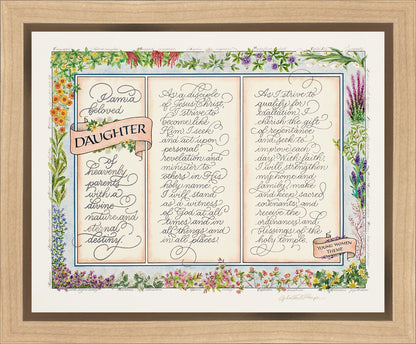 I am a
beloved
DAUGHTER
of
heavenly
parents
with a
divine
nature and
eternal
destiny.
As a disciple
of Jesus Christ,
I strive to
become like
Him. I seek
and act upon
personal
revelation and
minister to
others in His
holy name.
I will stand
as a witness
of God at all
times and in
all things and
in all places.
As I strive to
qualify for
exaltation, I
cherish the gift
of repentance
and seek to
improve each
day. With faith,
I will strengthen
my home and
family, make
and keep sacred
covenants, and
receive the
ordinances and
blessings of the
holy temple.
YOUNG WOMEN
THEME